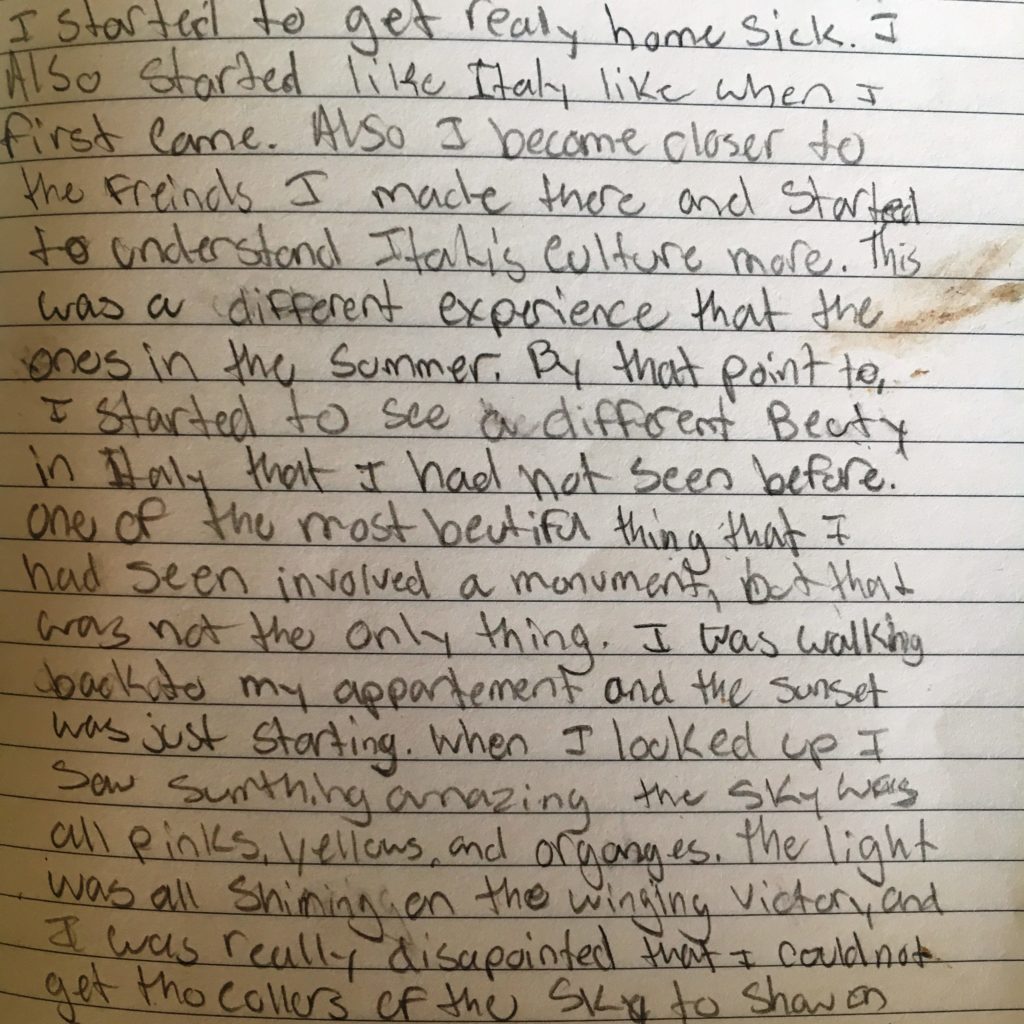 I started to get realy home sick. I
Also started like Italy like when I
first came. Also I became closer to
the freinds I made there and started
to understand Italis culture more. This
was a different experience that the
ones in the summer. By that point to,
I started to see a different Beuty
in Italy that I had not seen before.
one of the most beutiful thing that I
had seen involved a monument, but that
was not the only thing. I was walking
back to my appartement and the sunset
was just starting. when I looked up I
saw sumthing amazing the sky was
all pinks, yellows, and organges. the light
was all shining on the winging victory, and
I was really disapointed that I could not
get tho collors of the sky to show on